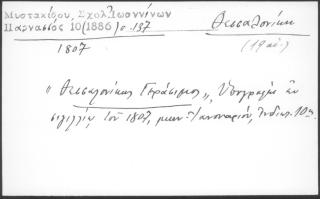 Μυστακίδου, Σχολ. Ἰωαννίνων
Παρνασσὸς 10 (1886) σ. 137
Θεσσαλονίκη
1807
(19 αἰ.)
"Θεσσαλονίκης Γεράσιμος", Ὑπογραφὴ ἐν
σιγιλλίῳ τοῦ 1807, μηνὶ Ἰανουαρίῳ, Ἰνδικτ. 10ης.